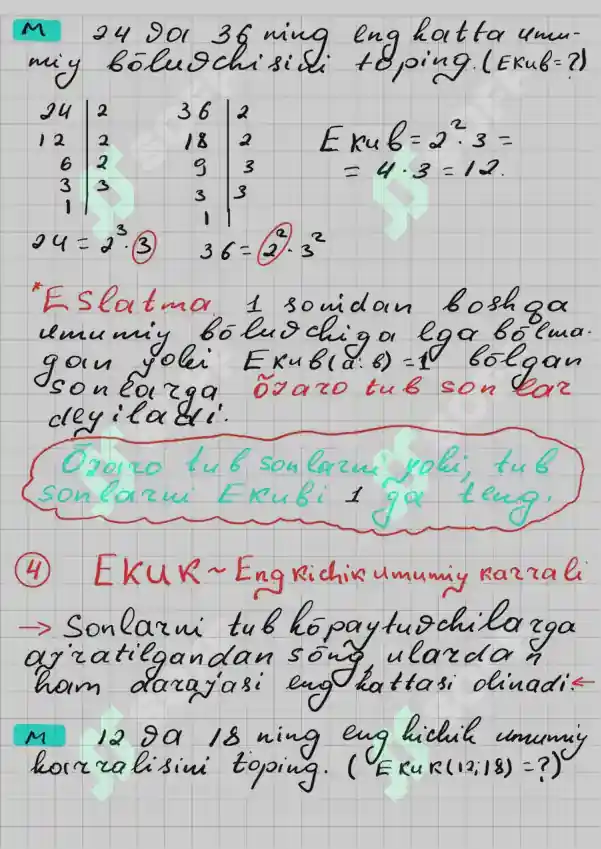 M 24 va 36 ning eng katta umu-
miy bõluvchisini toping. (EKUB=?)
24 | 2 36 | 2
12 | 2 18 | 2 EKUB = 2². 3 =
6 | 2 9 | 3 = 4 · 3 = 12.
3 | 3 3 | 3
1 | 1 |
24 = 2³·3 36 = 2² · 3²
*Eslatma 1 sonidan boshqa
umumiy bõluvchiga ega bõlma-
gan yoki EKUB(a: b) = 1 bõlgan
sonlarga õzaro tub sonlar
deyiladi.
Õzaro tub sonlarni yoki, tub
sonlarni EKUBi 1 ga teng.
4 EKUK ~ Eng kichik umumiy karrali
→ Sonlarni tub kõpaytuvchilarga
ajratilgandan sõng, ulardan
ham darajasi eng kattasi olinadi.←
M 12 va 18 ning eng kichik umumiy
karralisini toping. ( EKUK(12;18) =?)